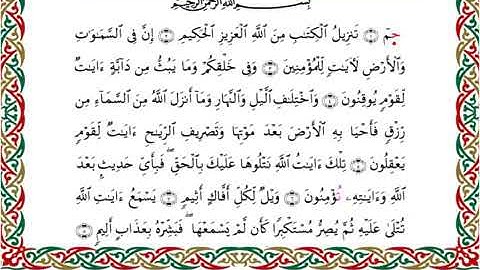 بِسْمِ ٱللَّهِ ٱلرَّحْمَٰنِ ٱلرَّحِيمِ
حمٓ ۝ تَنزِيلُ ٱلْكِتَٰبِ مِنَ ٱللَّهِ ٱلْعَزِيزِ ٱلْحَكِيمِ ۝ إِنَّ فِى ٱلسَّمَٰوَٰتِ
وَٱلْأَرْضِ لَأَيَٰتٍ لِّلْمُؤْمِنِينَ ۝ وَفِى خَلْقِكُمْ وَمَا يَبُثُّ مِن دَآبَّةٍ ءَايَٰتٌ
لِّقَوْمٍ يُوقِنُونَ ۝ وَٱخْتِلَٰفِ ٱلَّيْلِ وَٱلنَّهَارِ وَمَآ أَنزَلَ ٱللَّهُ مِنَ ٱلسَّمَآءِ مِن
رِّزْقٍ فَأَحْيَا بِهِ ٱلْأَرْضَ بَعْدَ مَوْتِهَا وَتَصْرِيفِ ٱلرِّيَٰحِ ءَايَٰتٌ لِّقَوْمٍ
يَعْقِلُونَ ۝ تِلْكَ ءَايَٰتُ ٱللَّهِ نَتْلُوهَا عَلَيْكَ بِٱلْحَقِّ ۖ فَبِأَىِّ حَدِيثٍۭ بَعْدَ
ٱللَّهِ وَءَايَٰتِهِۦ تُؤْمِنُونَ ۝ وَيْلٌ لِّكُلِّ أَفَّاكٍ أَثِيمٍ ۝ يَسْمَعُ ءَايَٰتِ ٱللَّهِ
تُتْلَىٰ عَلَيْهِ ثُمَّ يُصِرُّ مُسْتَكْبِرًا كَأَن لَّمْ يَسْمَعْهَا ۖ فَبَشِّرْهُ بِعَذَابٍ أَلِيمٍ ۝